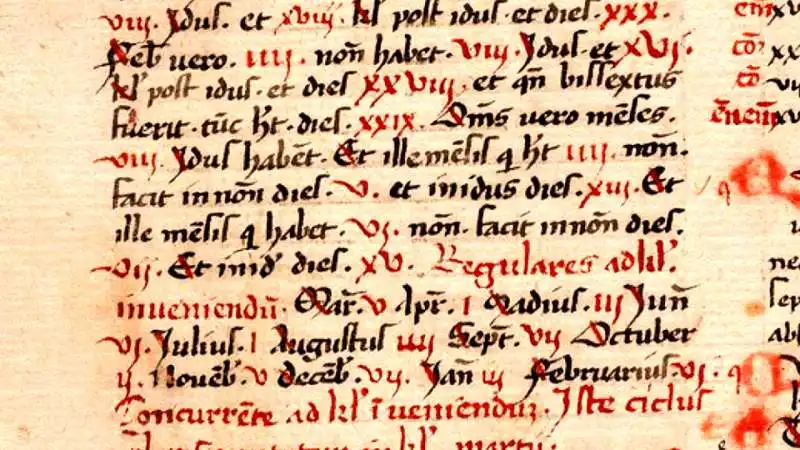 viii. Jdus. et xviii. kl' post idus. et dies. xxx.
Feb' vero. iiii. noñ habet. viii. Jdus. et xvi.
kl' post idus. et dies xxviii. et qñ bissextus
fuerit. tūc h̄t. dies. xxix. Om̄s vero mēses.
viii. Jdus habēt. Et ille mēsis q h̄t iiii. noñ.
facit in noñ dies. v. et in idus dies. xiii. Et
ille mēsis q habet. vi. noñ. facit in noñ dies.
vii. Et in id' dies. xv. Regulares ad kl'.
inveniendū. Mar̄. v Apr̄. i Madius. iii Juñ
vi. Julius. i Augustus iiii Sept̄. vii Octuber
ii. Novēb'. v decēb'. vii. Jañ iii Februarius. vi.
Concurrēte ad kl' īveniendū. Iste ciclus
in kl' martii.